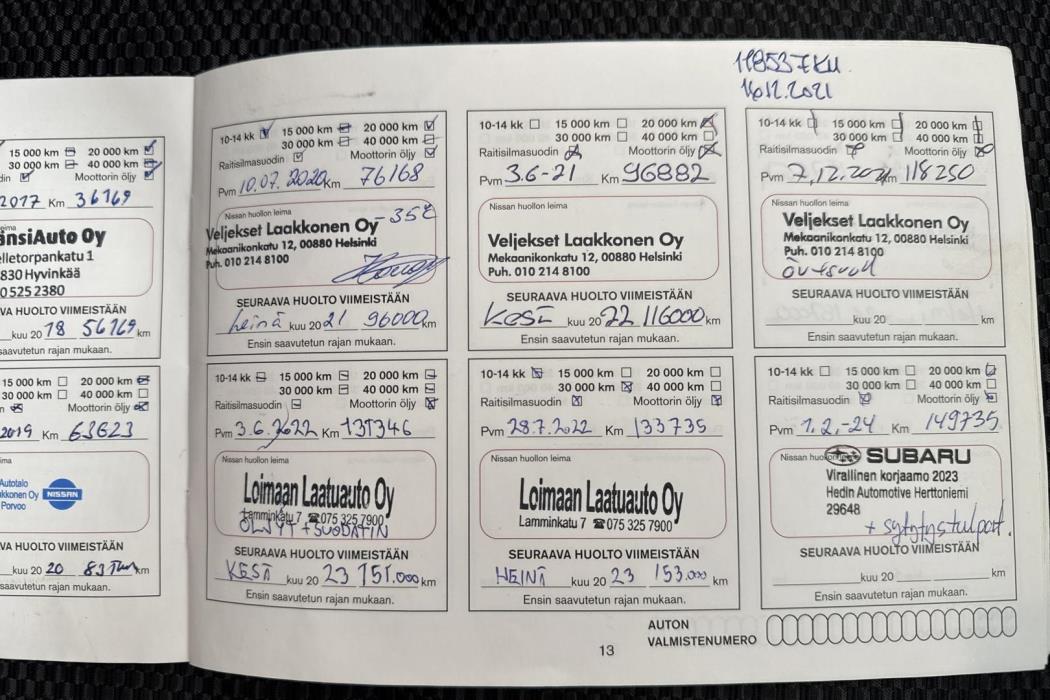 118537KM
16.12.2021
15 000 km 20 000 km
30 000 km 40 000 km
din Moottorin öljy
2017 Km 36169
eima
änsiAuto Oy
lletorpankatu 1
830 Hyvinkää
0 525 2380
VA HUOLTO VIIMEISTÄÄN
kuu 20 18 56169 km
saavutetun rajan mukaan.
10-14 kk 15 000 km 20 000 km
30 000 km 40 000 km
Raitisilmasuodin Moottorin öljy
Pvm 10.07.2020 Km 76168
Nissan huollon leima -35%
Veljekset Laakkonen Oy
Mekaanikonkatu 12, 00880 Helsinki
Puh. 010 214 8100
SEURAAVA HUOLTO VIIMEISTÄÄN
heinä kuu 20 21 96000 km
Ensin saavutetun rajan mukaan.
10-14 kk 15 000 km 20 000 km
30 000 km 40 000 km
Raitisilmasuodin Moottorin öljy
Pvm 3.6-21 Km 96882
Nissan huollon leima
Veljekset Laakkonen Oy
Mekaanikonkatu 12, 00880 Helsinki
Puh. 010 214 8100
SEURAAVA HUOLTO VIIMEISTÄÄN
KESÄ kuu 20 22 116000 km
Ensin saavutetun rajan mukaan.
10-14 kk 15 000 km 20 000 km
30 000 km 40 000 km
Raitisilmasuodin Moottorin öljy
Pvm 7.12.2021 Km 118250
Nissan huollon leima
Veljekset Laakkonen Oy
Mekaanikonkatu 12, 00880 Helsinki
Puh. 010 214 8100
SEURAAVA HUOLTO VIIMEISTÄÄN
kuu 20 km
Ensin saavutetun rajan mukaan.
15 000 km 20 000 km
30 000 km 40 000 km
n Moottorin öljy
2019 Km 63623
ima
Autotalo
kkonen Oy NISSAN
Porvoo
VA HUOLTO VIIMEISTÄÄN
kuu 20 20 km
saavutetun rajan mukaan.
10-14 kk 15 000 km 20 000 km
30 000 km 40 000 km
Raitisilmasuodin Moottorin öljy
Pvm 3.6.2022 Km 131346
Nissan huollon leima
Loimaan Laatuauto Oy
Lamminkatu 7 ☎075 325 7900
ÖLJYT + SUODATIN
SEURAAVA HUOLTO VIIMEISTÄÄN
KESÄ kuu 20 23 151.000 km
Ensin saavutetun rajan mukaan.
10-14 kk 15 000 km 20 000 km
30 000 km 40 000 km
Raitisilmasuodin Moottorin öljy
Pvm 28.7.2022 Km 133735
Nissan huollon leima
Loimaan Laatuauto Oy
Lamminkatu 7 ☎075 325 7900
SEURAAVA HUOLTO VIIMEISTÄÄN
HEINÄ kuu 20 23 153.000 km
Ensin saavutetun rajan mukaan.
10-14 kk 15 000 km 20 000 km
30 000 km 40 000 km
Raitisilmasuodin Moottorin öljy
Pvm 1.2.-24 Km 149735
Nissan huollon leima SUBARU
Virallinen korjaamo 2023
Hedin Automotive Herttoniemi
29648
+ sytytystulpat.
SEURAAVA HUOLTO VIIMEISTÄÄN
kuu 20 km
Ensin saavutetun rajan mukaan.
AUTON
VALMISTENUMERO
13